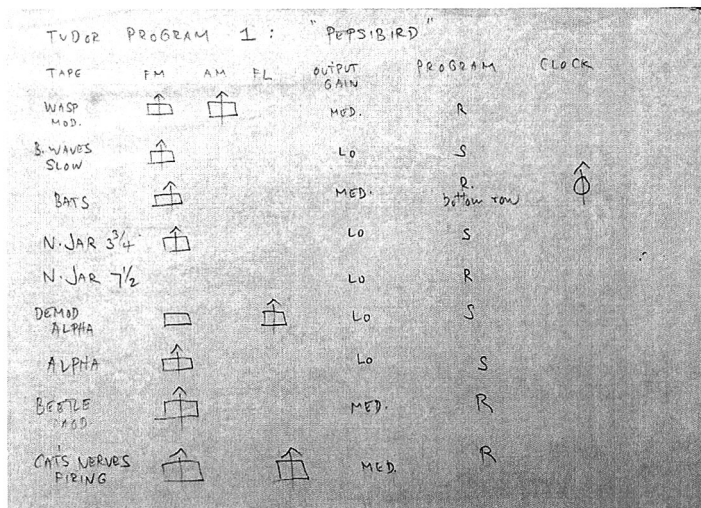 TUDOR PROGRAM 1: "PEPSIBIRD"
TAPE FM AM FL OUTPUT GAIN PROGRAM CLOCK
WASP MOD. MED. R
B. WAVES SLOW LO S
BATS MED. R. bottom row
N. JAR 3 3/4 LO S
N. JAR 7 1/2 LO R
DEMOD ALPHA LO S
ALPHA LO S
BEETLE MOD MED. R
CAT'S NERVES FIRING MED. R